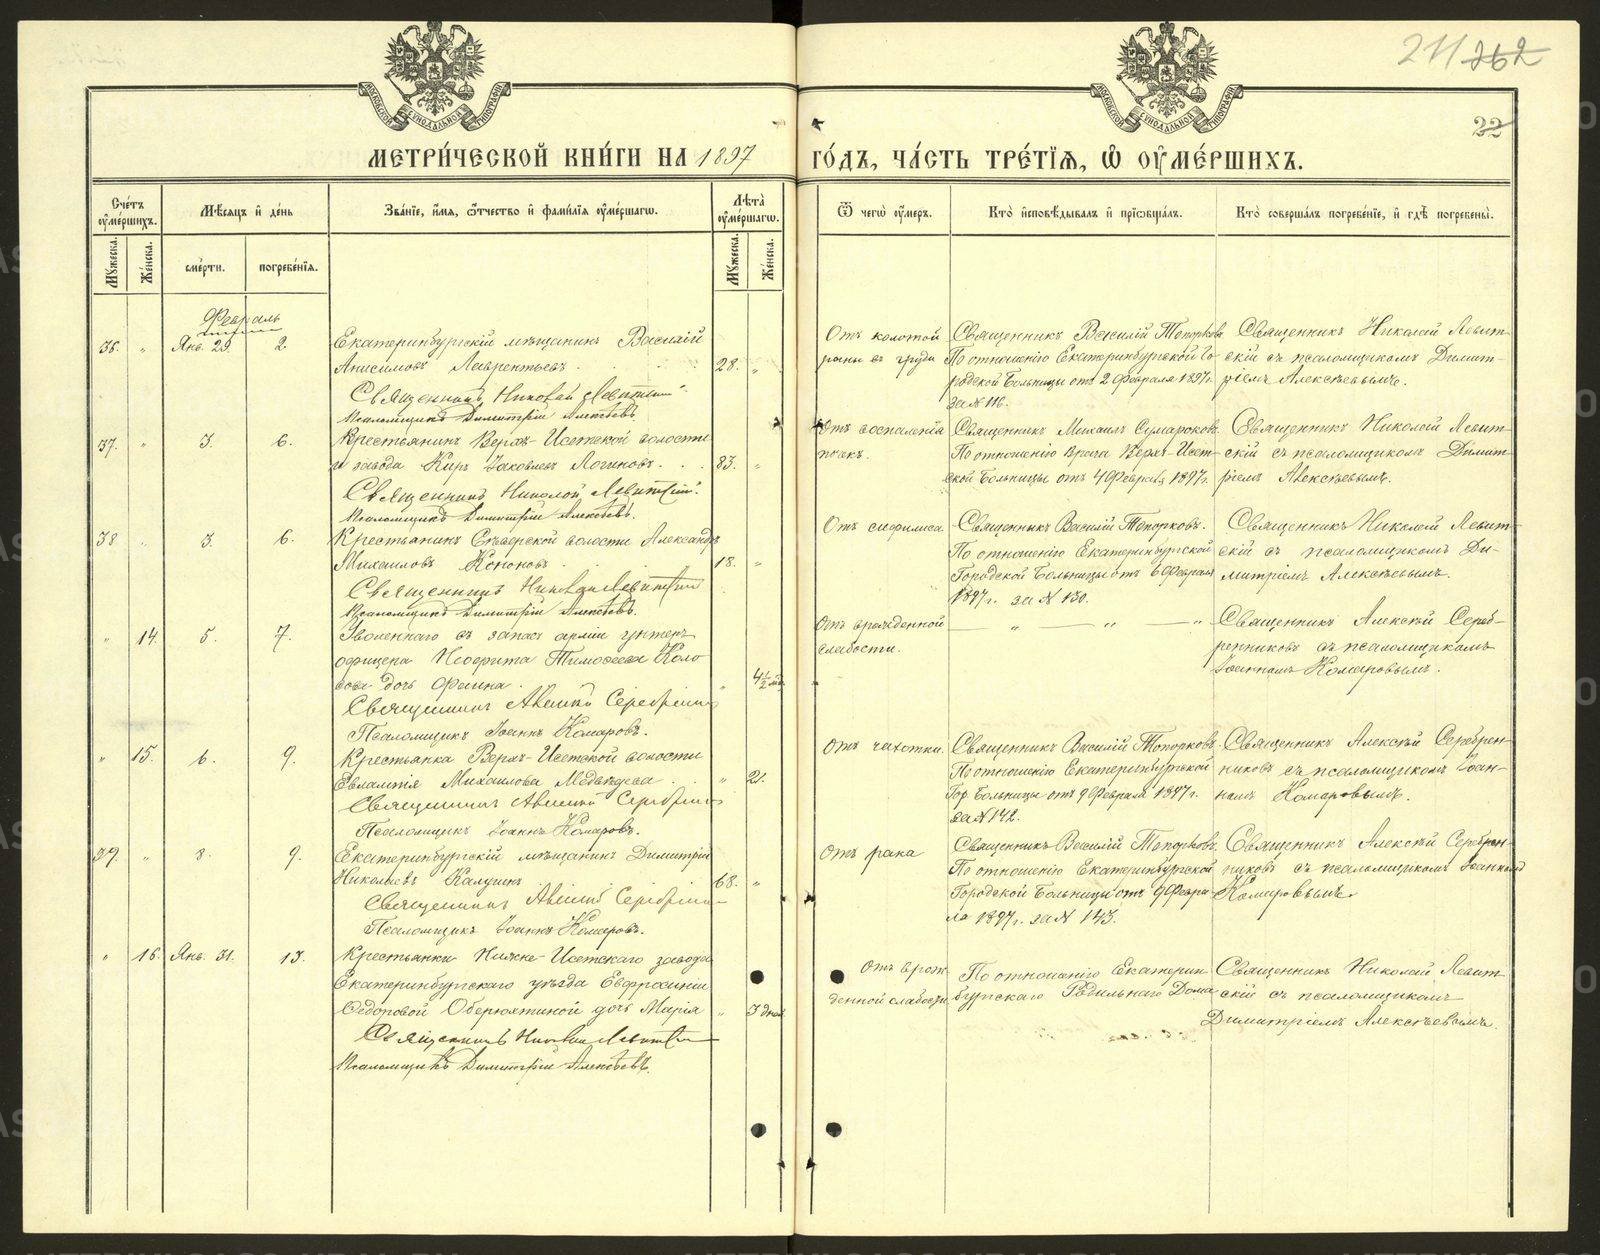 МОСКОВСКОЙ СѴНОДАЛЬНОЙ ТИПОГРАФІИ
МОСКОВСКОЙ СѴНОДАЛЬНОЙ ТИПОГРАФІИ
211 262
22
МЕТРИ́ЧЕСКОЙ КНИ́ГИ НА 1897 ГО́ДЪ, ЧА́СТЬ ТРЕ́ТІѦ, Ѡ ОУ҆МЕ́РШИХЪ.
Сче́тъ оу҆ме́ршихъ.
Мѣ́сѧцъ и҆ де́нь
Зва́нїе, и҆́мѧ, ѻ҆́тчество и҆ фами́лїѧ оу҆ме́ршагѡ.
Лѣ́та оу҆ме́ршагѡ.
Ѿ чегѡ̀ оу҆́меръ.
Кто̀ и҆сповѣ́дывалъ и҆ прїѡбща́лъ.
Кто̀ соверша́лъ погребе́нїе, и҆ гдѣ̀ погребены̀.
Мꙋ́жеска.
Же́нска.
сме́рти.
погребе́нїѧ.
Мꙋ́жеска.
Же́нска.
Февраль
36. „ Янв. 29. 2. Екатеринбургскій мѣщанинъ Василій
Анисимовъ Лаврентьевъ. 28. „
Священникъ Николай Левитскій
Псаломщикъ Димитрій Алексѣевъ.
Отъ колотой
раны въ груди
Священникъ Василій Топорковъ
По отношенію Екатеринбургской Го-
родской Больницы отъ 2 Февраля 1897 г.
за N 116.
Священникъ Николай Левит-
скій съ псаломщикомъ Димит-
ріемъ Алексѣевымъ.
37. „ 3. 6. Крестьянинъ Верхъ-Исетской волости
и завода Киръ Іаковлевъ Логиновъ. 83. „
Священникъ Николай Левитскій.
Псаломщикъ Димитрій Алексѣевъ.
Отъ воспаленія
почекъ.
Священникъ Михаилъ Сумароковъ.
По отношенію врача Верхъ-Исет-
ской Больницы отъ 4 Февраля 1897 г.
Священникъ Николай Левит-
скій съ псаломщикомъ Димит-
ріемъ Алексѣевымъ.
38 „ 3. 6. Крестьянинъ волости Александръ
Михаиловъ Кононовъ. 18. „
Священникъ Николай Левитскій
Псаломщикъ Димитрій Алексѣевъ.
Отъ сифилиса
Священникъ Василій Топорковъ.
По отношенію Екатеринбургской
Городской Больницы отъ 6 Февраля
1897 г. за N 130.
Священникъ Николай Левит-
скій съ псаломщикомъ Ди-
митріемъ Алексѣевымъ.
„ 14. 5. 7. Уволеннаго въ запасъ арміи унтеръ-
офицера Тимоѳеева Коло
сова дочь Фаина. „ 4½ мѣс.
Священникъ Алексій Серебренниковъ
Псаломщикъ Іоаннъ Комаровъ.
Отъ врожденной
слабости.
— „ — „ — „
Священникъ Алексѣй Сереб-
ренниковъ съ псаломщикомъ
Іоанномъ Комаровымъ.
„ 15. 6. 9. Крестьянка Верхъ-Исетской волости
Евлампія Михаилова Медвѣдева. „ 21.
Священникъ Алексій Серебренниковъ
Псаломщикъ Іоаннъ Комаровъ.
Отъ чахотки.
Священникъ Василій Топорковъ.
По отношенію Екатеринбургской
Гор. Больницы отъ 9 Февраля 1897 г.
за N 142.
Священникъ Алексѣй Серебрен-
никовъ съ псаломщикомъ Іоан-
номъ Комаровымъ.
39. „ 8. 9. Екатеринбургскій мѣщанинъ Димитрій
Николаевъ Калугинъ 68. „
Священникъ Алексій Серебренниковъ
Псаломщикъ Іоаннъ Комаровъ.
Отъ рака
Священникъ Василій Топорковъ.
По отношенію Екатеринбургской
Городской Больницы отъ 9 Февра-
ля 1897 г. за N 143.
Священникъ Алексѣй Серебрен-
никовъ съ псаломщикомъ Іоанномъ
Комаровымъ.
„ 16. Янв. 31. 13. Крестьянки Нижне-Исетскаго завода
Екатеринбургскаго уѣзда Евфросиніи
Ѳедоровой Оберюхтиной дочь Марія „ 3 дней
Священникъ Николай Левитскій
Псаломщикъ Димитрій Алексѣевъ.
Отъ врож-
денной слабости.
По отношенію Екатерин-
бургскаго Родильнаго Дома
Священникъ Николай Левит-
скій съ псаломщикомъ
Димитріемъ Алексѣевымъ.